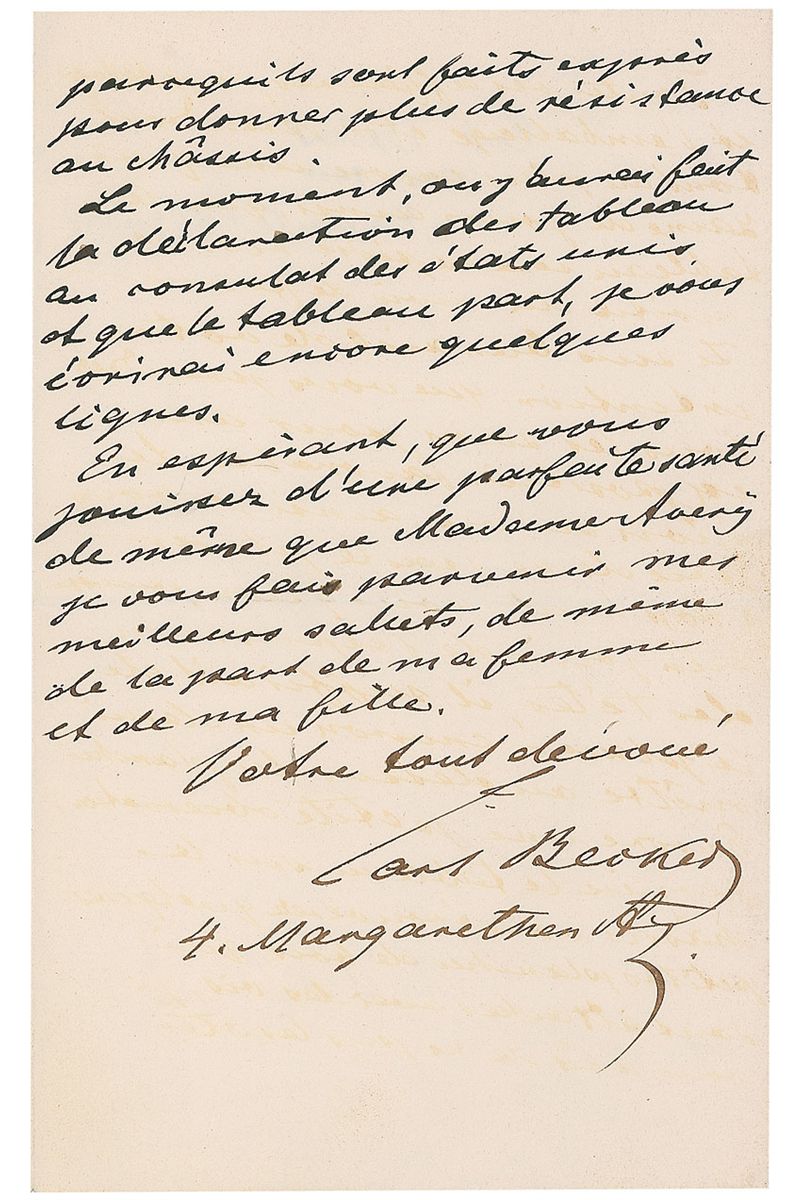 parcequils sont faits exprès
pour donner plus de résistance
au châssis.
Le moment, ou j'aurai fait
la déclaration des tableau
au consulat des états unis,
et que le tableau part, je vous
écrirai encore quelques
lignes.
En espérant, que vous
jouissez d'une parfaite santé
de même que Madame Avery
je vous fais parvenir mes
meilleurs saluts, de même
de la part de ma femme
et de ma fille.
Votre tout dévoué
Carl Becker
4. Margarethen Str.